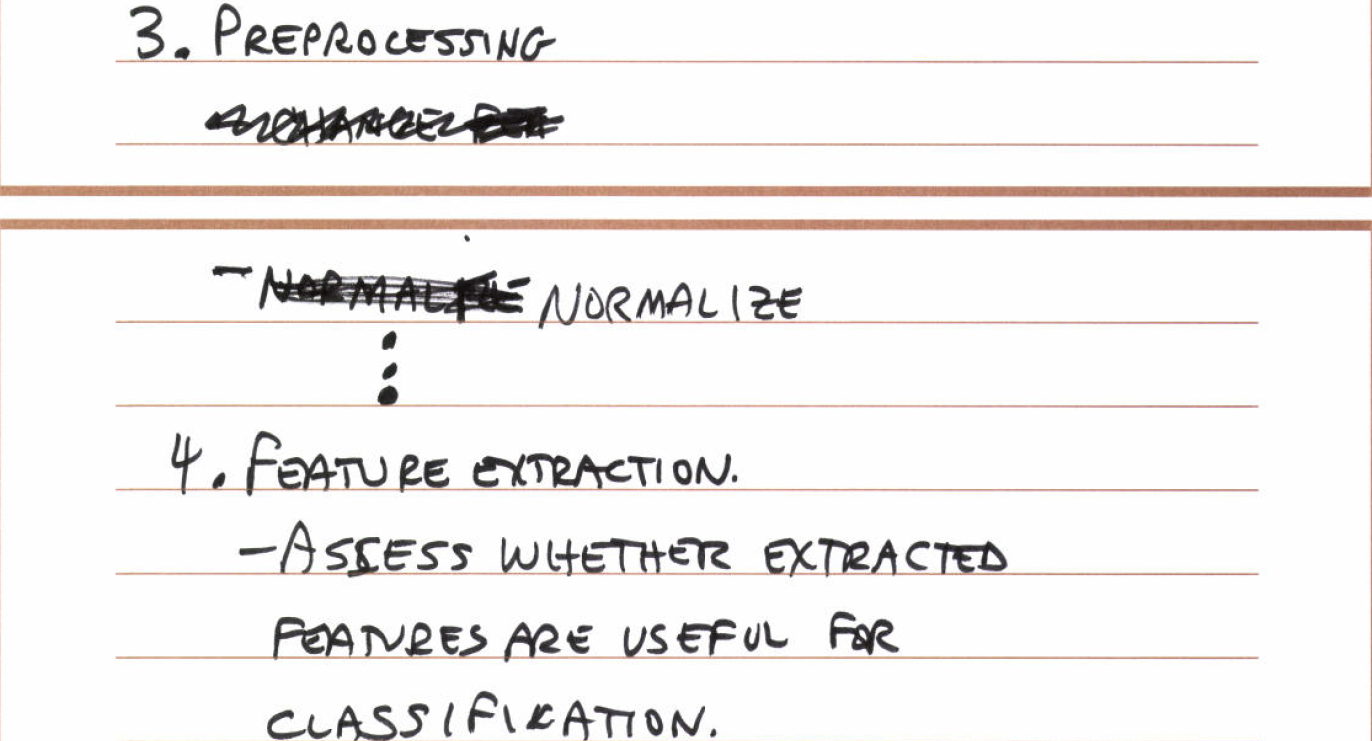 3. PREPROCESSING
- NORMALIZE
4. FEATURE EXTRACTION.
- ASSESS WHETHER EXTRACTED
FEATURES ARE USEFUL FOR
CLASSIFICATION.